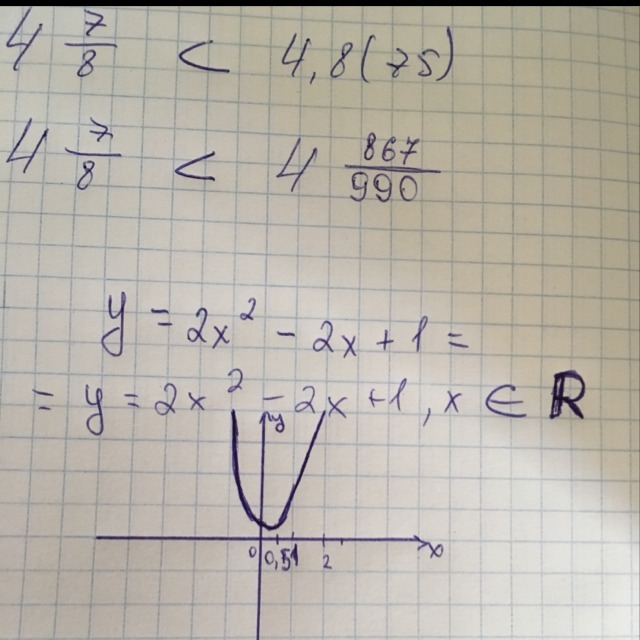 4 7/8 < 4,8(75)
4 7/8 < 4 867/990
y = 2x² - 2x + 1 =
= y = 2x² - 2x + 1, x ∈ ℝ
y
0 0,5 1 2 x